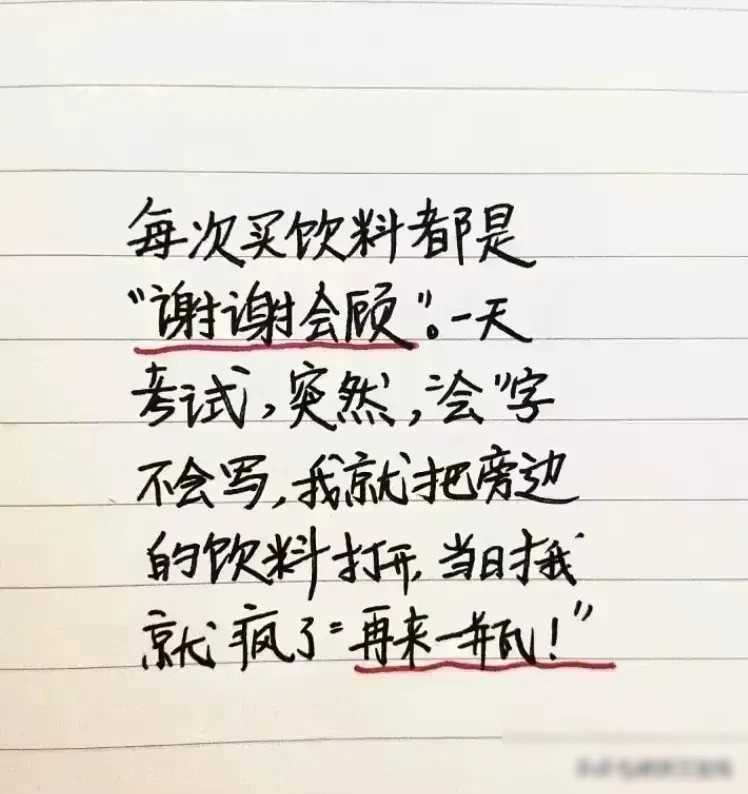 每次买饮料都是
“谢谢会顾”。一天
考试,突然,“会”字
不会写,我就把旁边
的饮料打开,当时我
就疯了“再来一瓶!”